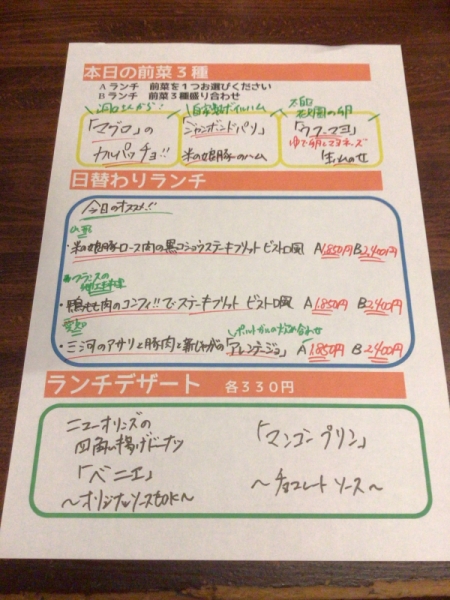 本日の前菜３種
Aランチ 前菜を１つお選びください
Bランチ 前菜３種盛り合わせ
自家製ボイルハム
「マグロ」の
カルパッチョ!!
「ジャンボンドパリ」
米の娘豚のハム
「ウフ・マヨ」
ゆで卵とマヨネーズ
生ハムのせ
日替わりランチ
今日のオススメ!!
・米の娘豚ロース肉の黒コショウステーキフリット ビストロ風 A1,850円 B2,400円
フランスの
郷土料理
・鴨もも肉のコンフィ!! で・ステーキフリット ビストロ風 A1,850円 B2,400円
愛知
ポルトガルの
・三河のアサリと豚肉と新じゃがの「アレンテージョ」 A1,850円 B2,400円
ランチデザート 各３３０円
ニューオリンズの
四角い揚げドーナツ
「ベニエ」
～オリジナルソースを～
「マンゴープリン」
～チョコレートソース～